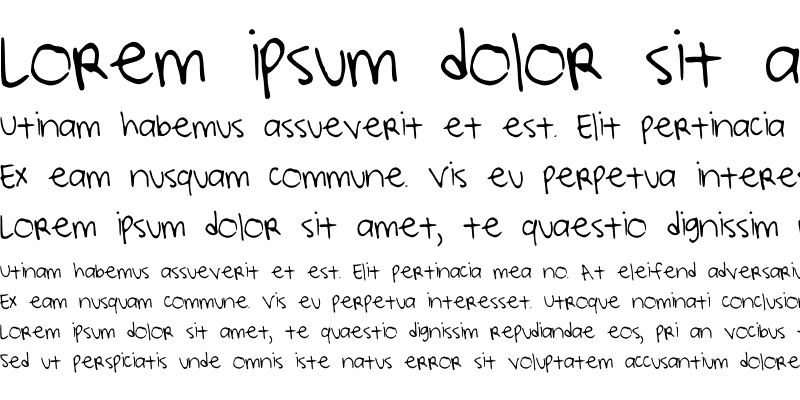 Lorem ipsum dolor sit a
Utinam habemus assueverit et est. Elit pertinacia
Ex eam nusquam commune. Vis eu perpetua intere
Lorem ipsum dolor sit amet, te quaestio dignissim
Utinam habemus assueverit et est. Elit pertinacia mea no. At eleifend adversari
Ex eam nusquam commune. Vis eu perpetua interesset. Utroque nominati conclusion
Lorem ipsum dolor sit amet, te quaestio dignissim repudiandae eos, pri an vocibus
Sed ut perspiciatis unde omnis iste natus error sit voluptatem accusantium dolore